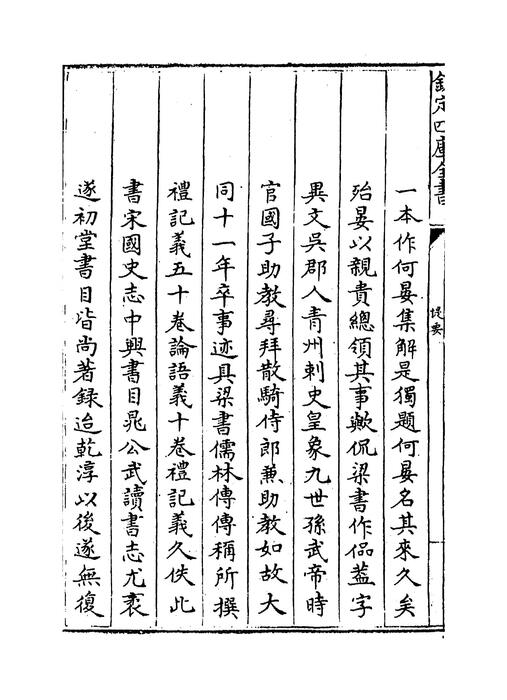 欽定四庫全書
提要
一本作何晏集解是獨題何晏名其來久矣
殆晏以親貴總領其事歟侃梁書作偘蓋字
異文吳郡人青州刺史皇象九世孫武帝時
官國子助教尋拜散騎侍郎兼助教如故大
同十一年卒事迹具梁書儒林傳傳稱所撰
禮記義五十卷論語義十卷禮記義久佚此
書宋國史志中興書目晁公武讀書志尤袤
遂初堂書目皆尚著錄迨乾淳以後遂無復